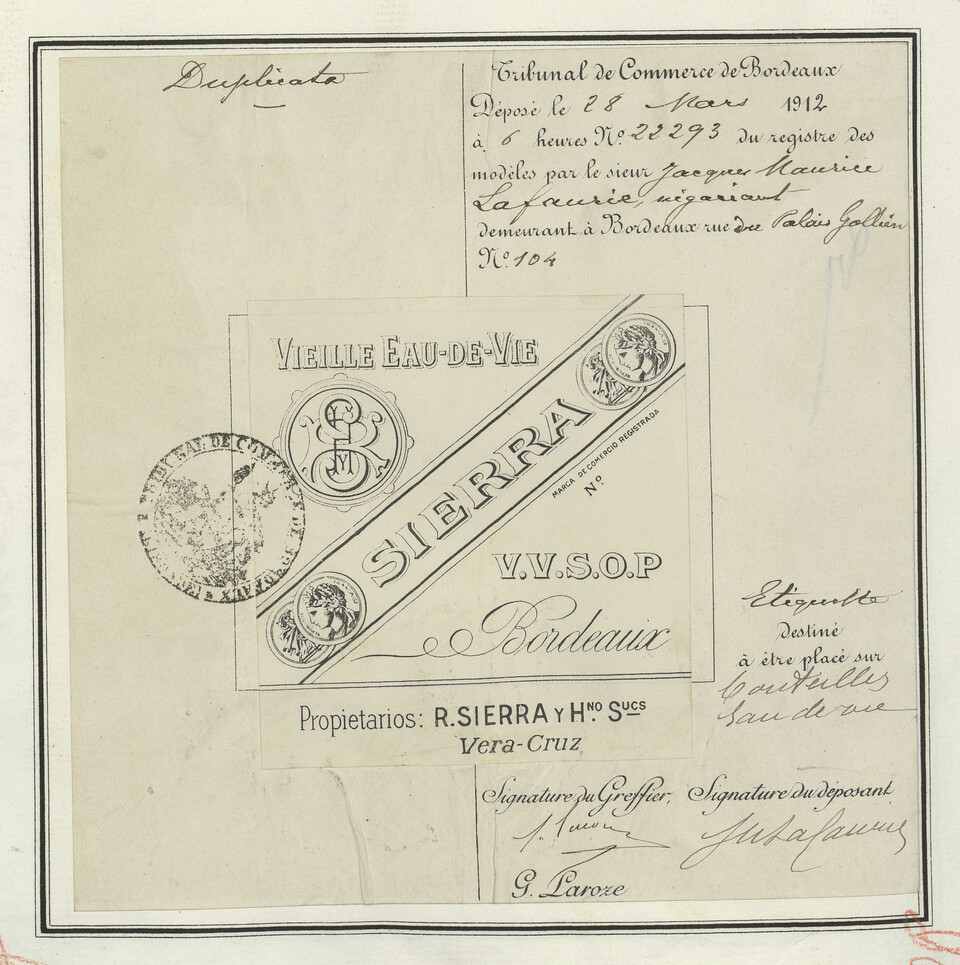 Duplicata
Tribunal de Commerce de Bordeaux
Déposé le 28 Mars 1912
à 6 heures Nº 22293 du registre des
modèles par le sieur Jacques Maurice
Lafaurie, négociant
demeurant à Bordeaux rue du Palais Gallien
Nº 104
VIEILLE EAU-DE-VIE
SIERRA
MARCA DE COMERCIO REGISTRADA
Nº
V.V.S.O.P
Bordeaux
TRIBUNAL DE COMMERCE DE BORDEAUX
Etiquette
destiné
à être placé sur
bouteilles
eau de vie
Propietarios: R. SIERRA Y HNO. SUCS
Vera-Cruz
Signature du Greffier, Signature du déposant
G. Laroze